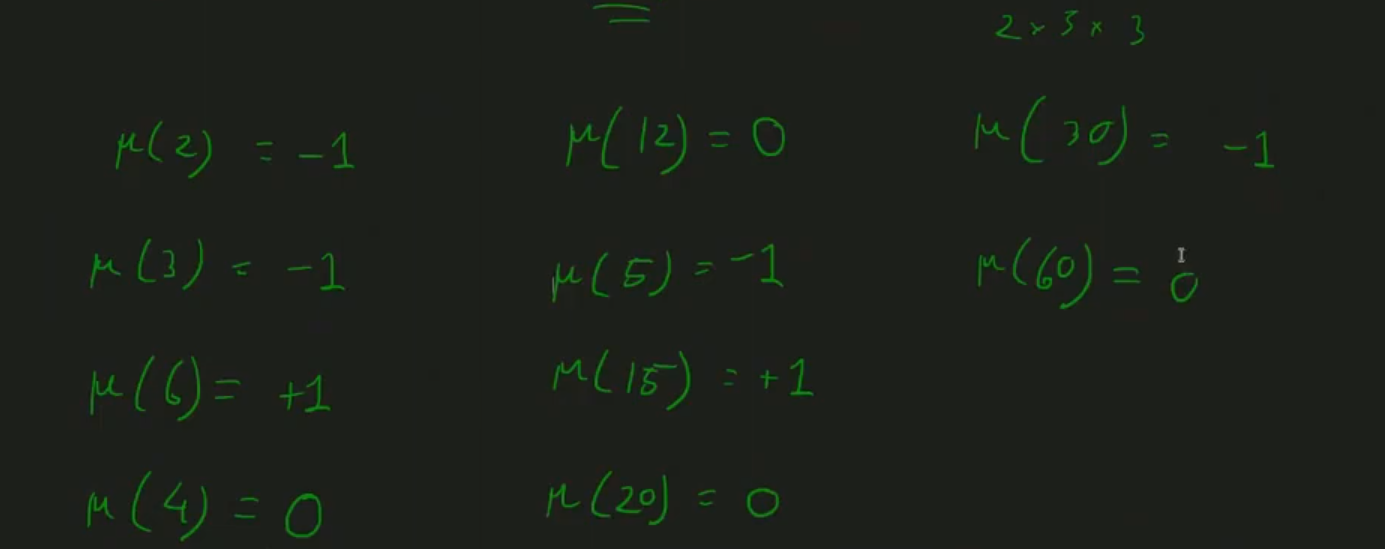 2 × 5 × 3
μ(2) = -1
μ(3) = -1
μ(6) = +1
μ(4) = 0
μ(12) = 0
μ(5) = -1
μ(15) = +1
μ(20) = 0
μ(30) = -1
μ(60) = 0